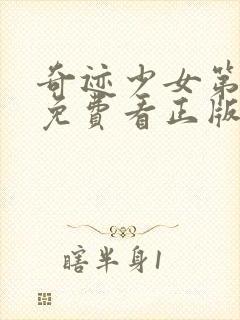 奇迹少女第
免費看正版
瞎半身1